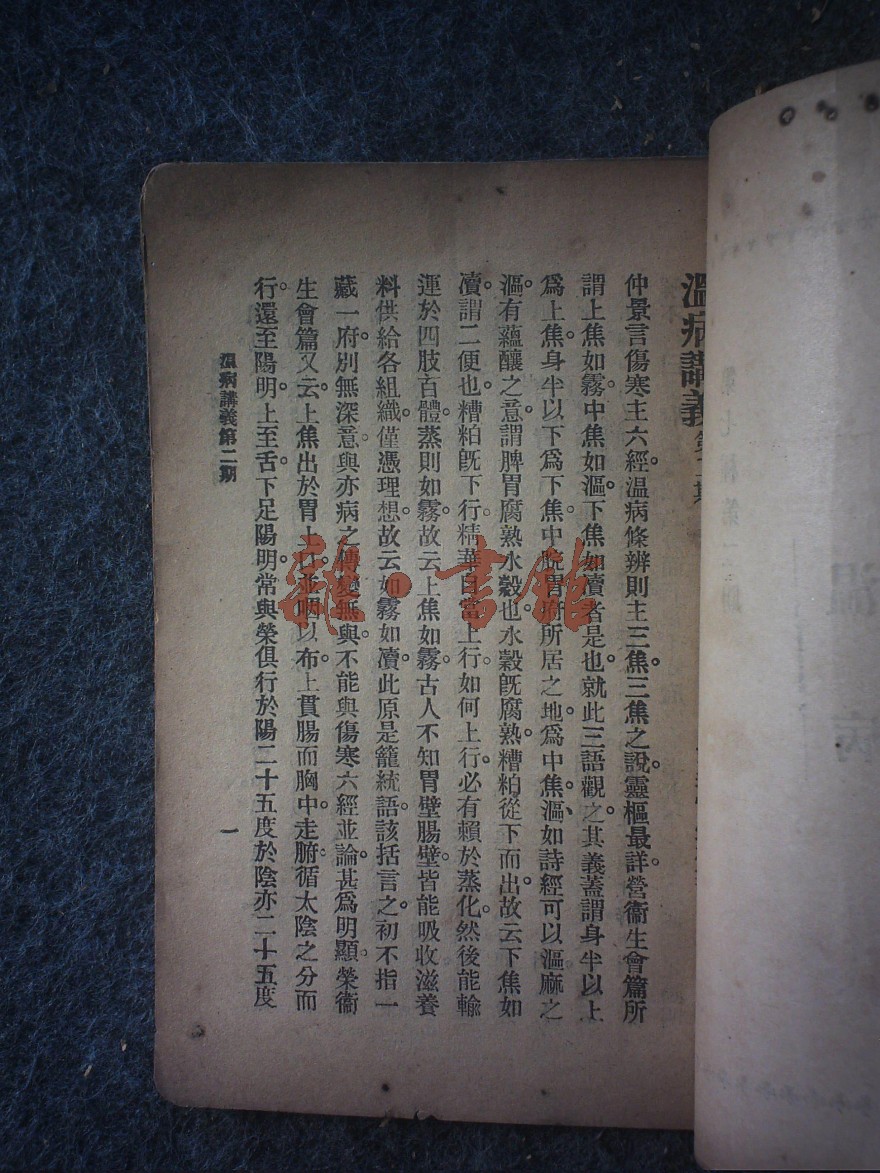 溫病講義第二期
仲景言傷寒主六經。温病條辨則主三焦。三焦之說。靈樞最詳。營衞生會篇所
謂上焦如霧。中焦如漚。下焦如瀆者是也。就此三語觀之。其義蓋謂身半以上
爲上焦。身半以下爲下焦。中脘胃府所居之地。爲中焦。漚、如詩經可以漚麻之
漚。有蘊釀之意。謂脾胃腐熟水穀也。水穀旣腐熟。糟粕從下而出。故云下焦如
瀆。謂二便也。糟粕旣下行。精華自當上行。如何上行。必有賴於蒸化。然後能輸
運於四肢百體。蒸則如霧。故云上焦如霧。古人不知胃壁腸壁。皆能吸收滋養
料。供給各組織。僅憑理想。故云如霧如瀆。此原是籠統語。該括言之。初不指一
藏一府。別無深意。與亦病之傳變無與。不能與傷寒六經並論。甚爲明顯。榮衞
生會篇又云。上焦出於胃上口。並咽以布。上貫腸而胸中。走腑。循太陰之分而
行。還至陽明。上至舌。下足陽明。常與榮俱行於陽二十五度。於陰亦二十五度
溫病講義第二期
一
龍・書館
溫
病